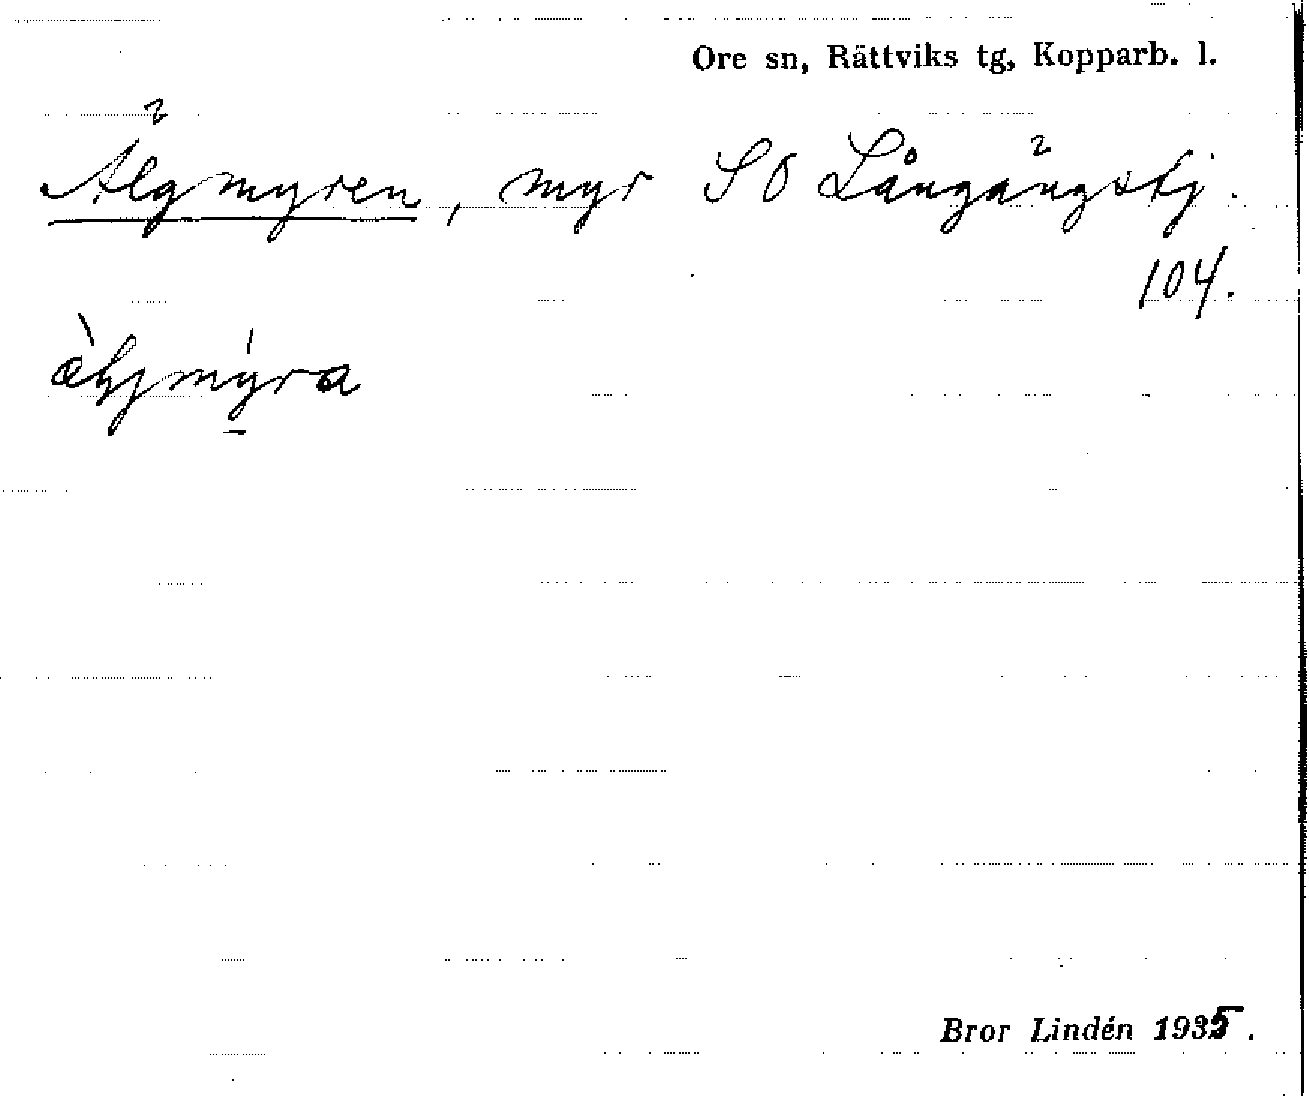 Ore sn, Rättviks tg, Kopparb. l.
Älgmyren, myr SO Långängstj.
104.
Bror Lindén 1935.